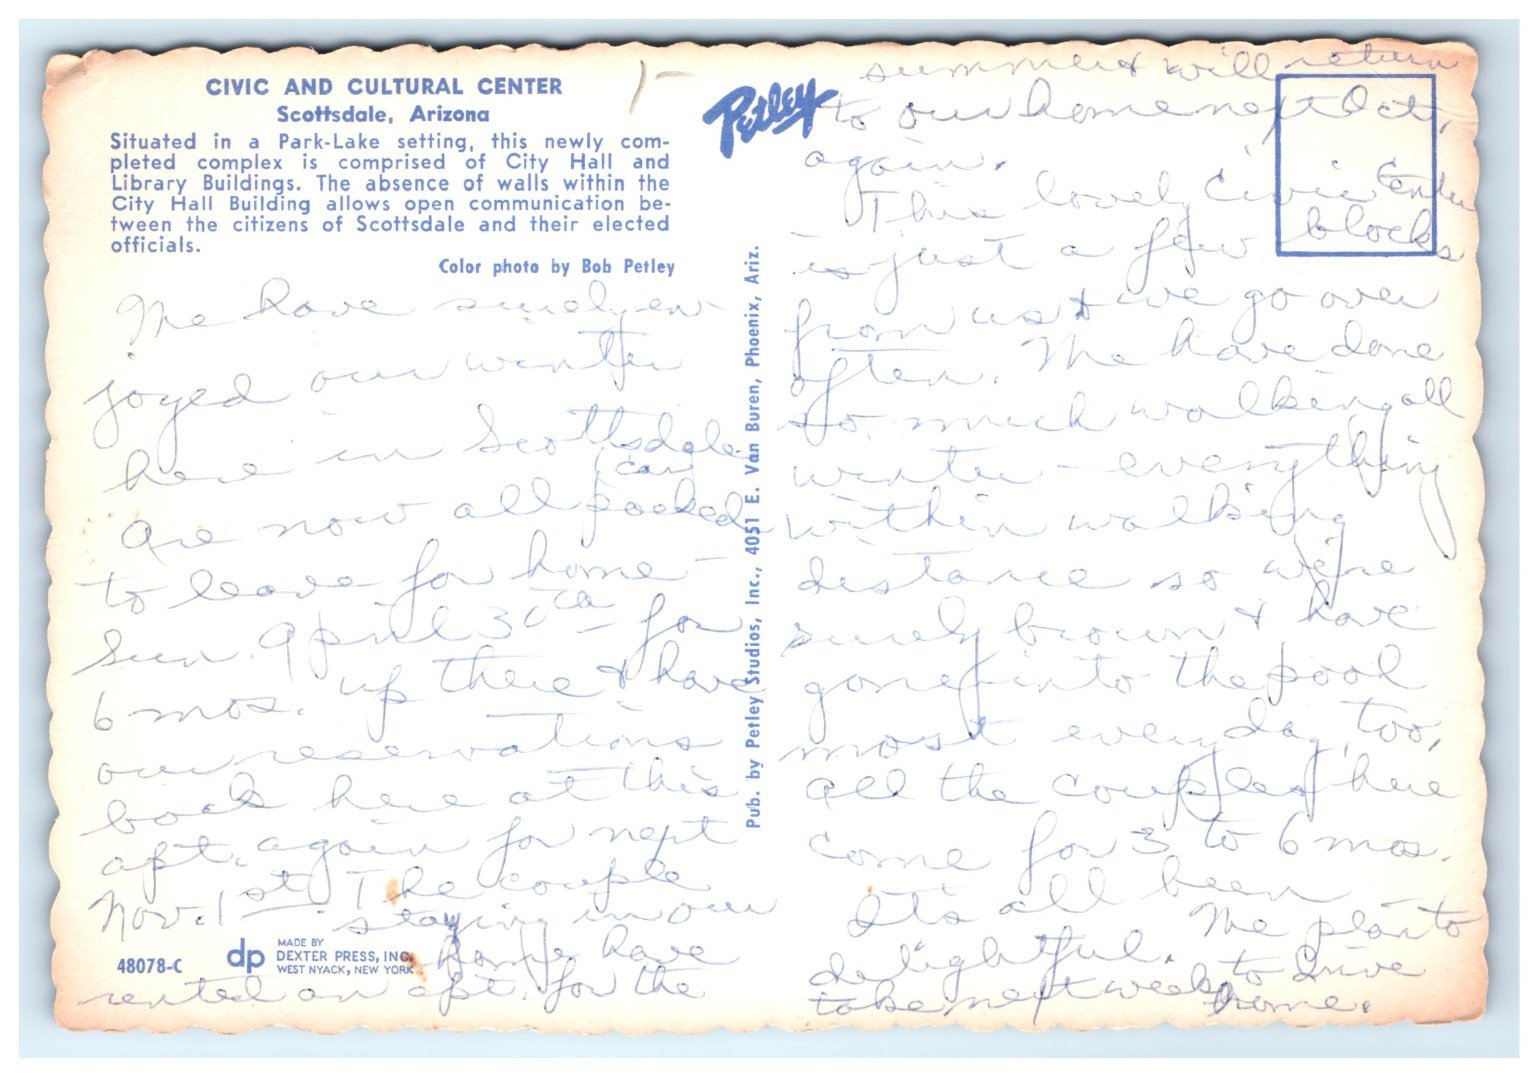 CIVIC AND CULTURAL CENTER
Scottsdale, Arizona
Situated in a Park-Lake setting, this newly com-
pleted complex is comprised of City Hall and
Library Buildings. The absence of walls within the
City Hall Building allows open communication be-
tween the citizens of Scottsdale and their elected
officials.
Color photo by Bob Petley
1-
Petley
Pub. by Petley Studios, Inc., 4051 E. Van Buren, Phoenix, Ariz.
We have surely en-
joyed our winter
here in Scottsdale
car
Are now all packed
to leave for home -
Sun. April 30th for
6 mos. up there & have
our reservations
back here at this
apt. again for next
Nov. 1st The couple
staying in our
home have
rented an apt. for the
48078-C
dp
MADE BY
DEXTER PRESS, INC.
WEST NYACK, NEW YORK
summer & will return
to our home next Oct.
again.
This lovely Civic Center
is just a few blocks
from us & we go over
often. We have done
so much walking all
winter - everything
within walking
distance so we're
surely brown & have
gone into the pool
most every day, too.
All the couples here
come for 3 to 6 mos.
It's all been
delightful. We plan to
take next week to drive
home.